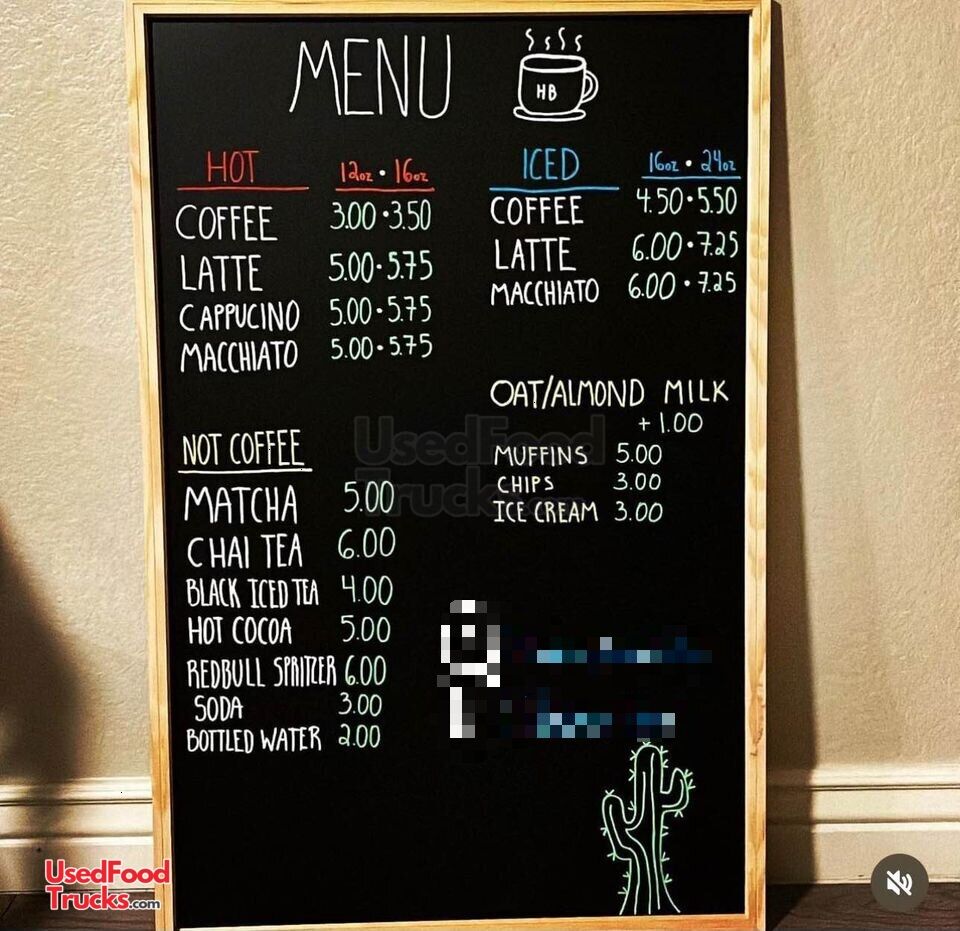 MENU
HB
HOT 12oz • 16oz
COFFEE 3.00 • 3.50
LATTE 5.00 • 5.75
CAPPUCINO 5.00 • 5.75
MACCHIATO 5.00 • 5.75
ICED 16oz • 24oz
COFFEE 4.50 • 5.50
LATTE 6.00 • 7.25
MACCHIATO 6.00 • 7.25
OAT/ALMOND MILK
+ 1.00
MUFFINS 5.00
CHIPS 3.00
ICE CREAM 3.00
NOT COFFEE
MATCHA 5.00
CHAI TEA 6.00
BLACK ICED TEA 4.00
HOT COCOA 5.00
REDBULL SPRITZER 6.00
SODA 3.00
BOTTLED WATER 2.00
UsedFood
Trucks.com
UsedFood
Trucks.com